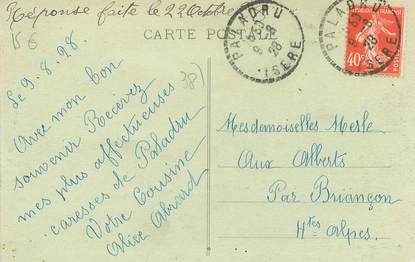 Réponse faite le 22 Octobre
CARTE POSTALE
PALADRU
9-8
28
ISÈRE
PALADRU
9-8
28
ISÈRE
40c
POSTES
(38)
Le 9.8.28
Avec mon bon
souvenir Recevez
mes plus affectueuses
caresses de Paladru
Votre Cousine
Alice
Mesdemoiselles Merle
Aux Alberts
Par Briançon
Htes Alpes.